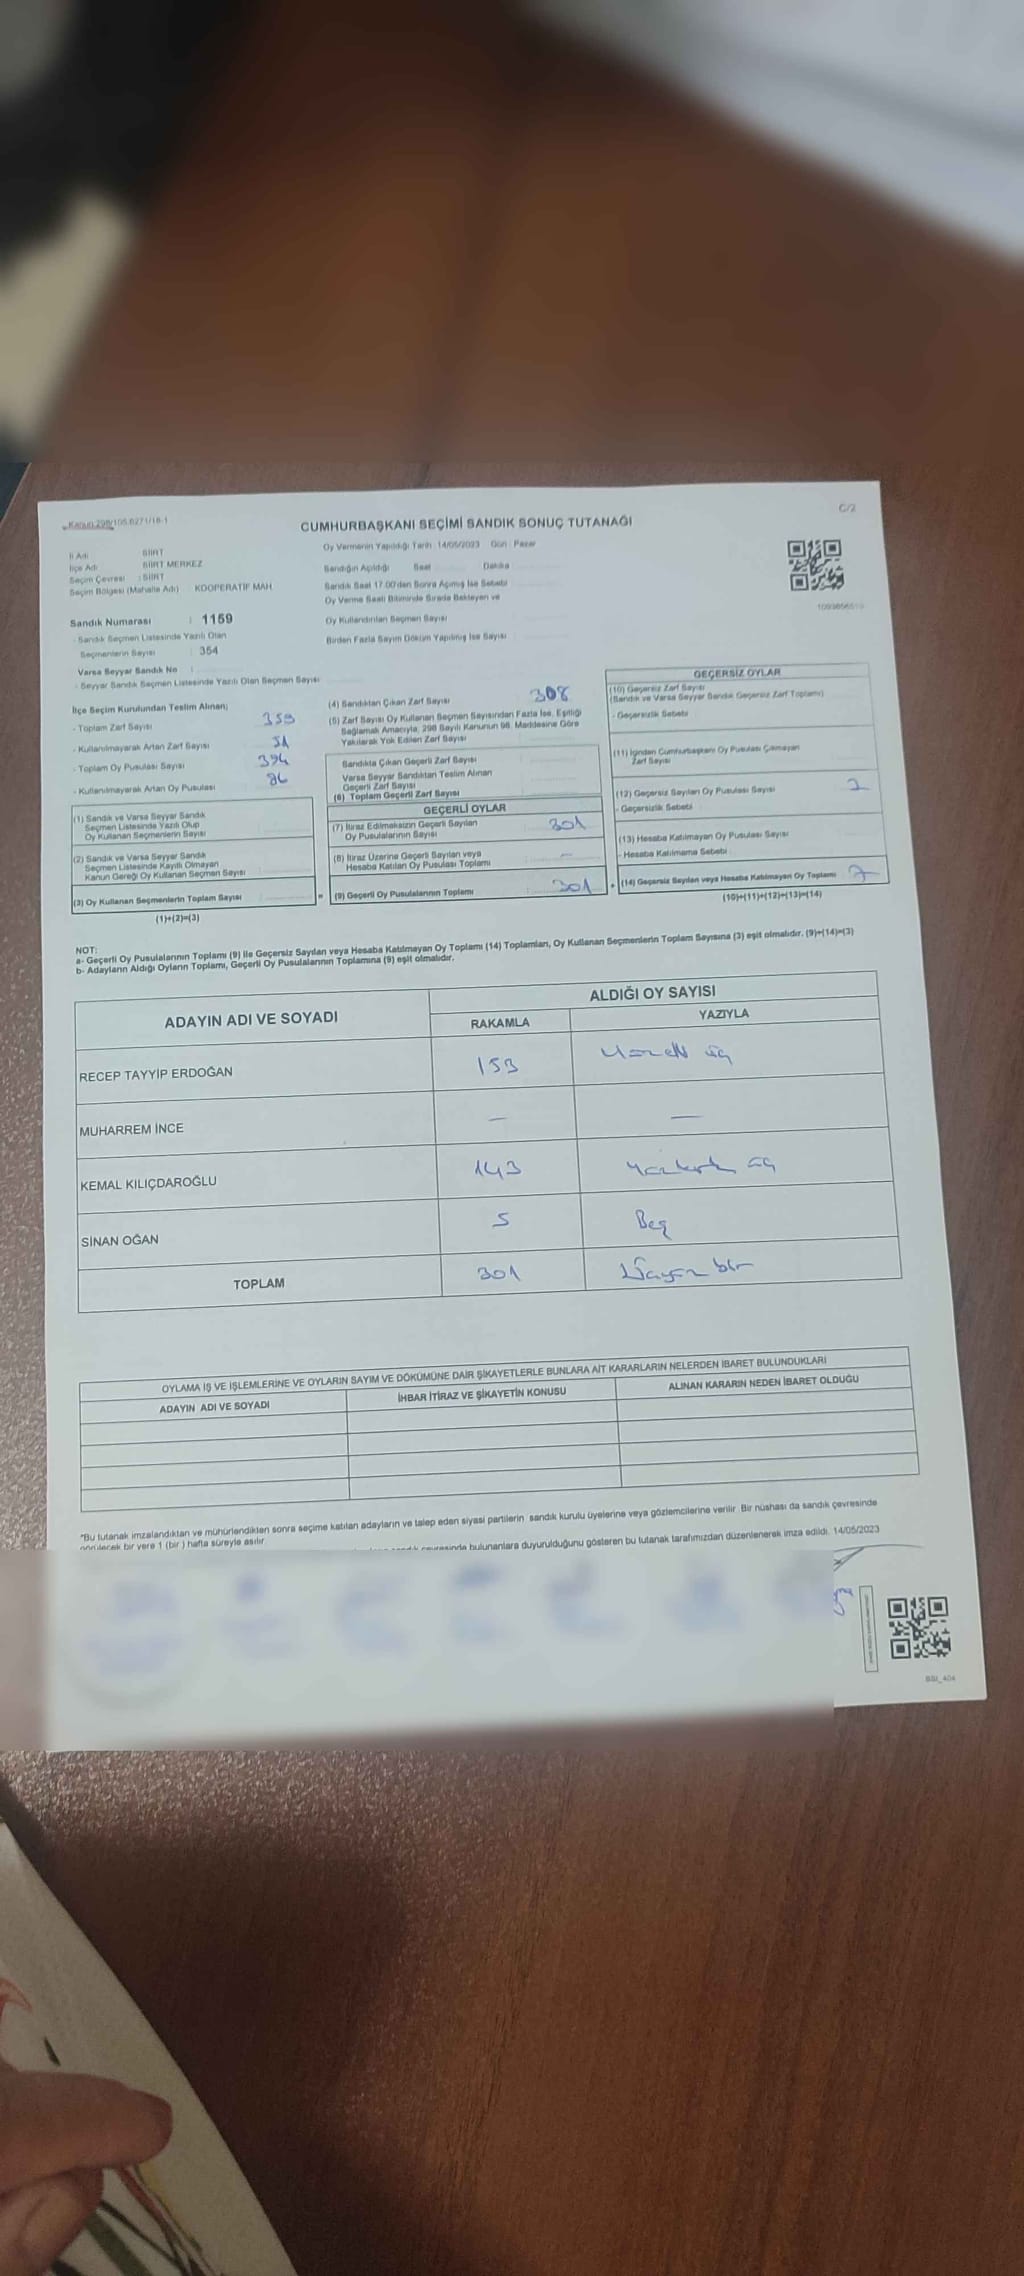 Kanun 298/105.6271/16-1
C/2
CUMHURBAŞKANI SEÇİMİ SANDIK SONUÇ TUTANAĞI
İl Adı SİİRT
İlçe Adı SİİRT MERKEZ
Seçim Çevresi : SİİRT
Seçim Bölgesi (Mahalle Adı) KOOPERATİF MAH
Sandık Numarası : 1159
- Sandık Seçmen Listesinde Yazılı Olan
Seçmenlerin Sayısı : 354
Varsa Seyyar Sandık No :
- Seyyar Sandık Seçmen Listesinde Yazılı Olan Seçmen Sayısı
Oy Vermenin Yapıldığı Tarih : 14/05/2023 Gün : Pazar
Sandığın Açıldığı Saat Dakika
Sandık Saat 17.00'den Sonra Açımış İse Sebebi
Oy Verme Saati Bitiminde Sırada Bekleyen ve
Oy Kullandırılan Seçmen Sayısı
Birden Fazla Sayım Döküm Yapılmış İse Sayısı
İlçe Seçim Kurulundan Teslim Alınan;
- Toplam Zarf Sayısı 359
- Kullanılmayarak Artan Zarf Sayısı 51
- Toplam Oy Pusulası Sayısı 394
- Kullanılmayarak Artan Oy Pusulası 86
(1) Sandık ve Varsa Seyyar Sandık
Seçmen Listesinde Yazılı Olup
Oy Kullanan Seçmenlerin Sayısı
(2) Sandık ve Varsa Seyyar Sandık
Seçmen Listesinde Kayıtlı Olmayan
Kanun Gereği Oy Kullanan Seçmen Sayısı
(3) Oy Kullanan Seçmenlerin Toplam Sayısı
(1)+(2)=(3)
(4) Sandıktan Çıkan Zarf Sayısı 308
(5) Zarf Sayısı Oy Kullanan Seçmen Sayısından Fazla İse, Eşitliği
Sağlamak Amacıyla, 298 Sayılı Kanunun 98. Maddesine Göre
Yakılarak Yok Edilen Zarf Sayısı
Sandıkta Çıkan Geçerli Zarf Sayısı
Varsa Seyyar Sandıktan Teslim Alınan
Geçerli Zarf Sayısı
(6) Toplam Geçerli Zarf Sayısı
GEÇERLİ OYLAR
(7) İtiraz Edilmeksizin Geçerli Sayılan
Oy Pusulalarının Sayısı 301
(8) İtiraz Üzerine Geçerli Sayılan veya
Hesaba Katılan Oy Pusulası Toplamı —
= (9) Geçerli Oy Pusulalarının Toplamı 301
GEÇERSİZ OYLAR
(10) Geçersiz Zarf Sayısı
(Sandık ve Varsa Seyyar Sandık Geçersiz Zarf Toplamı)
- Geçersizlik Sebebi
(11) İçinden Cumhurbaşkanı Oy Pusulası Çıkmayan
Zarf Sayısı
(12) Geçersiz Sayılan Oy Pusulası Sayısı
- Geçersizlik Sebebi
(13) Hesaba Katılmayan Oy Pusulası Sayısı
- Hesaba Katılmama Sebebi
+ (14) Geçersiz Sayılan veya Hesaba Katılmayan Oy Toplamı 7
(10)+(11)+(12)+(13)=(14)
NOT:
a- Geçerli Oy Pusulalarının Toplamı (9) ile Geçersiz Sayılan veya Hesaba Katılmayan Oy Toplamı (14) Toplamları, Oy Kullanan Seçmenlerin Toplam Sayısına (3) eşit olmalıdır. (9)+(14)=(3)
b- Adayların Aldığı Oyların Toplamı, Geçerli Oy Pusulalarının Toplamına (9) eşit olmalıdır.
ADAYIN ADI VE SOYADI
ALDIĞI OY SAYISI
RAKAMLA YAZIYLA
RECEP TAYYİP ERDOĞAN 153 Yüzelli üç
MUHARREM İNCE — —
KEMAL KILIÇDAROĞLU 143 Yüzkırk üç
SİNAN OĞAN 5 Beş
TOPLAM 301 Üçyüz bir
OYLAMA İŞ VE İŞLEMLERİNE VE OYLARIN SAYIM VE DÖKÜMÜNE DAİR ŞİKAYETLERLE BUNLARA AİT KARARLARIN NELERDEN İBARET BULUNDUKLARI
ADAYIN ADI VE SOYADI İHBAR İTİRAZ VE ŞİKAYETİN KONUSU ALINAN KARARIN NEDEN İBARET OLDUĞU
*Bu tutanak imzalandıktan ve mühürlendikten sonra seçime katılan adayların ve talep eden siyasi partilerin sandık kurulu üyelerine veya gözlemcilerine verilir. Bir nüshası da sandık çevresinde
görülecek bir yere 1 (bir ) hafta süreyle asılır.
çevresinde bulunanlara duyurulduğunu gösteren bu tutanak tarafımızdan düzenlenerek imza edildi. 14/05/2023